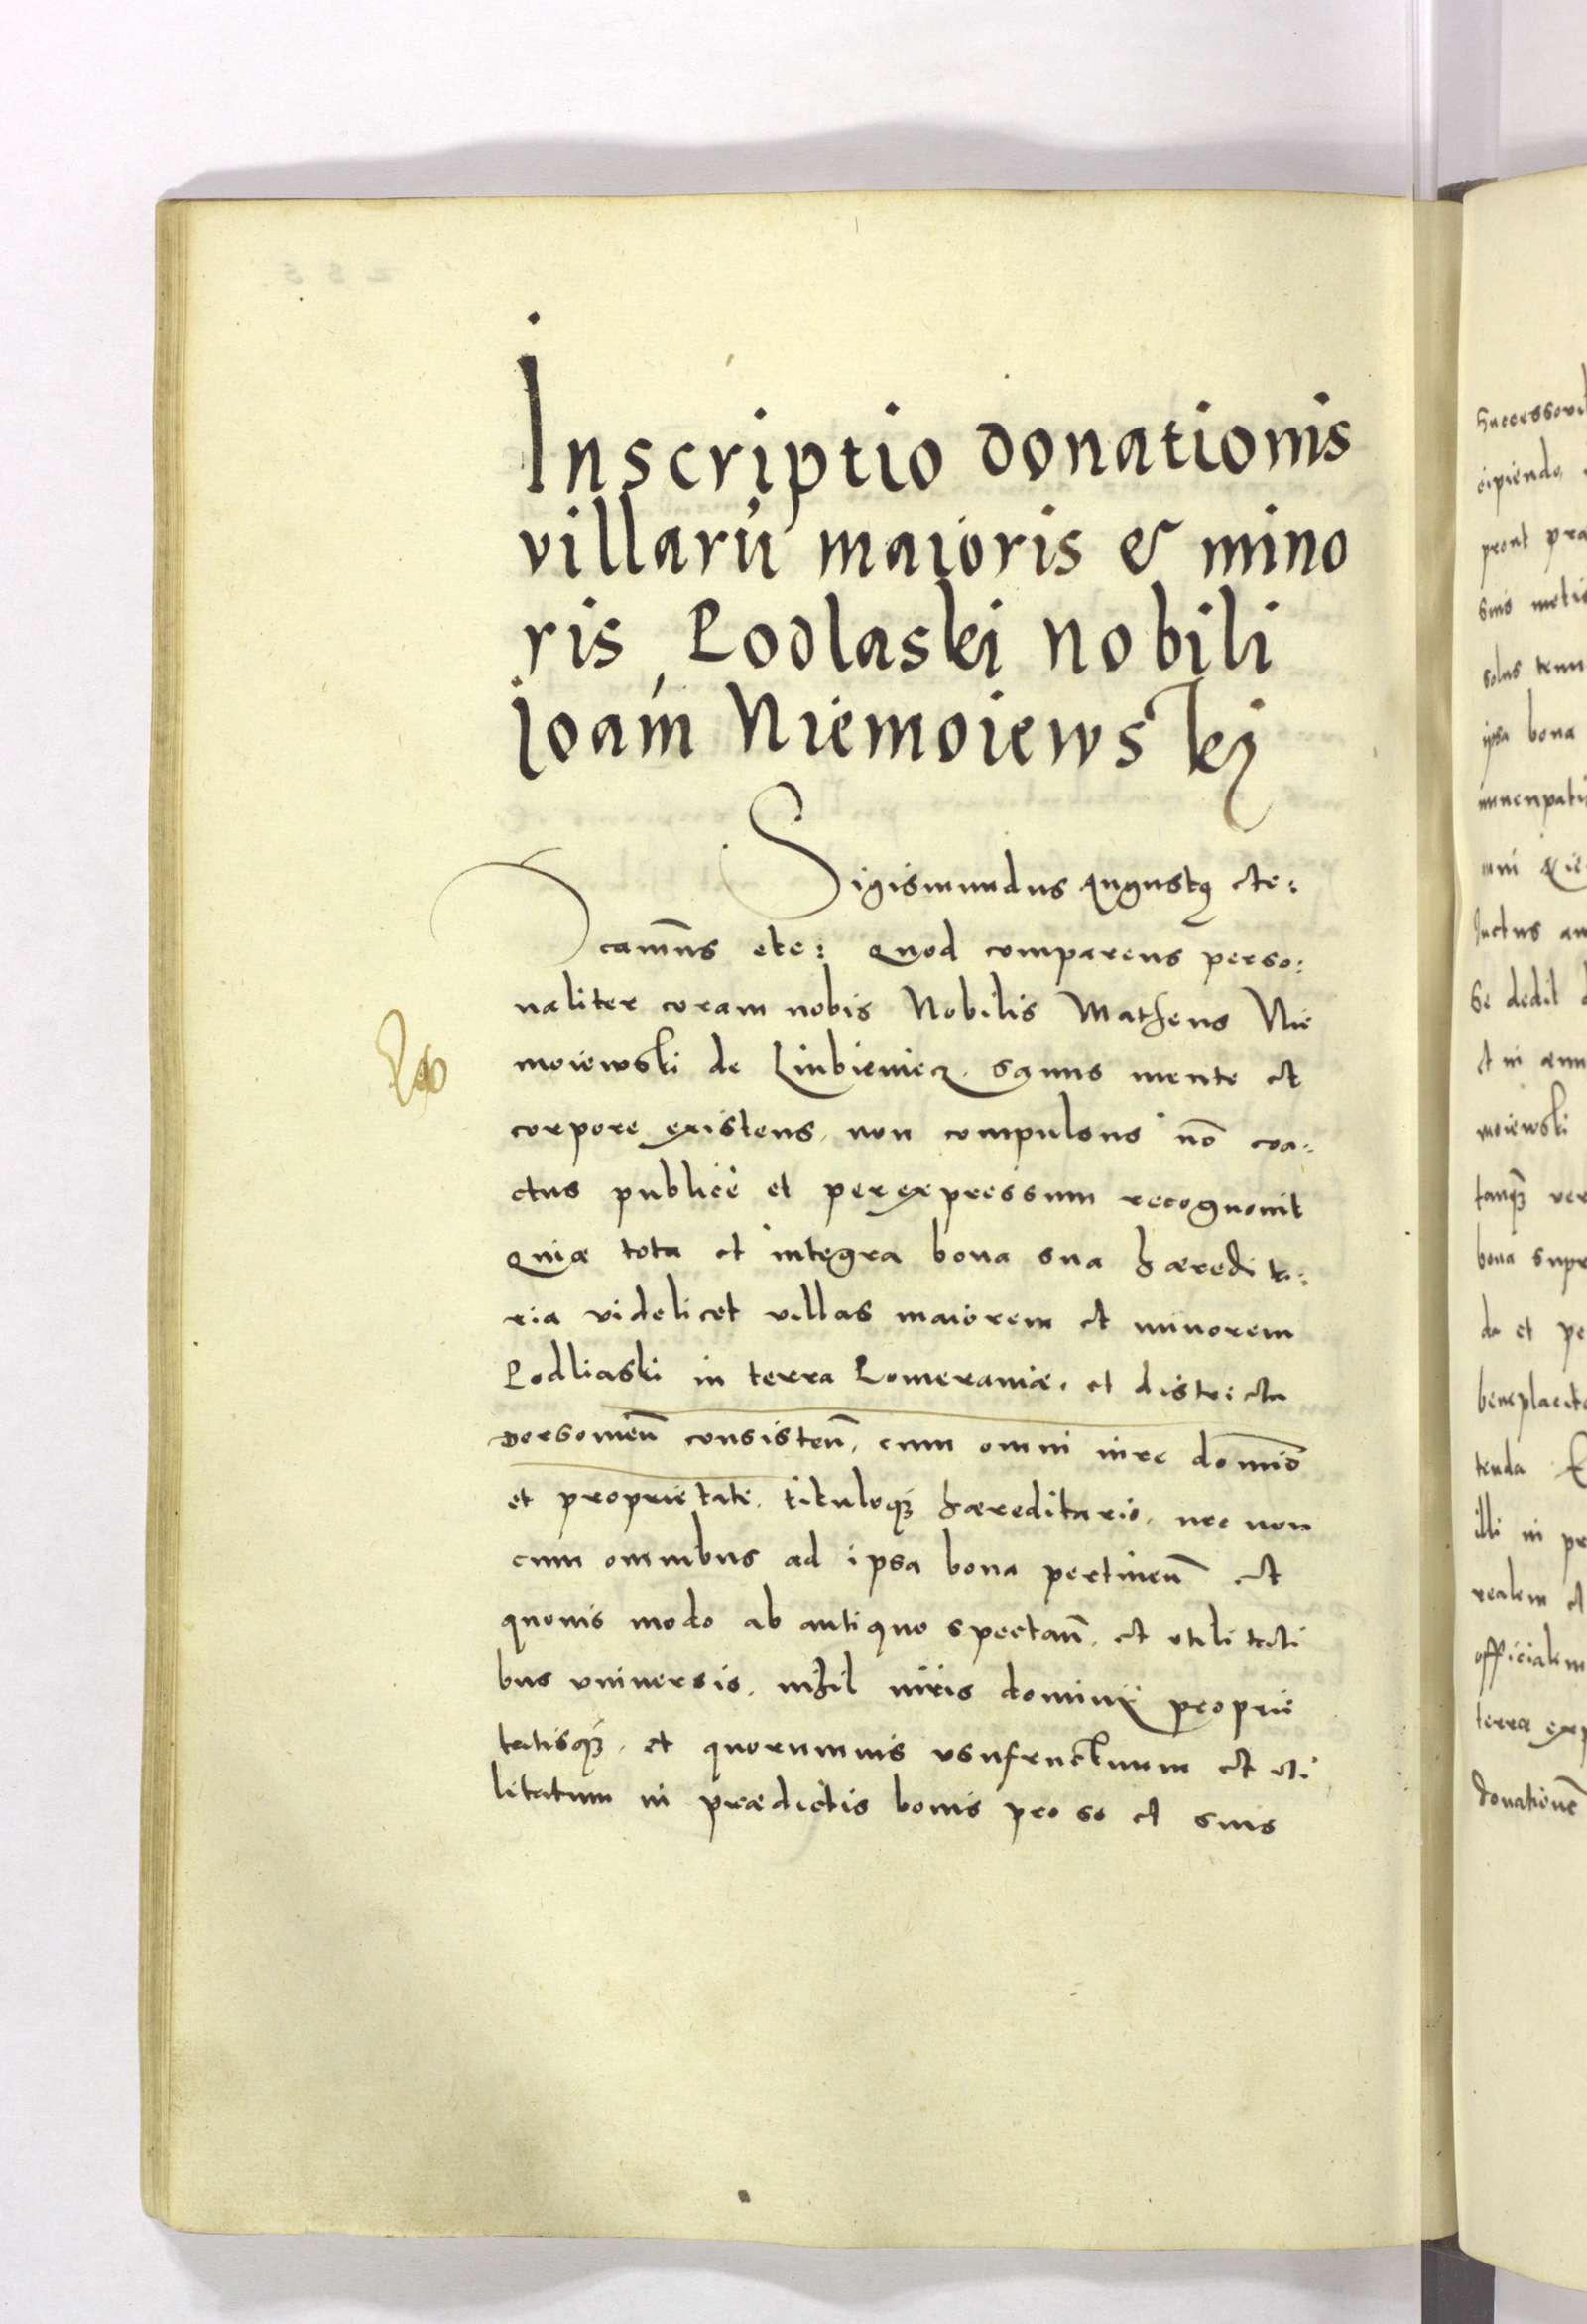 Inscriptio donationis
villarũ maioris & mino
ris Podlaski nobili
Joañi Niemoiewskj
Sigismundus Augustus etc:
camus etc: Quod comparens perso:
naliter coram nobis Nobilis Matheus Nie
moiewski de Liubieniecz. sanus mente et
corpore existens, non compulsus nõ coa:
ctus publice et per expressum recognouit
Quia tota et integra bona sua hæredita:
ria videlicet villas maiorem et minorem
Podliaski in terra Pomeraniæ, et districtu
consisteñ, cum omni iure domiõ
et proprietate, tituloq3 hæreditario, nec non
cum omnibus ad ipsa bona pertineñ et
quouis modo ab antiquo spectañ, et utilitati
bus vniuersis, nihil iuris dominij proprie
tatisq3, et quorumuis vsufructuum et uti
litatum in prædictis bonis pro se et suis
Successori
cipiendo
prout præ
suis
solus tenu
ipsa bona
se dedit
et in
moiewski
tanq3 ver
bona supr
da et pe
beneplacito
tenda
illi in pr
realem et
officialem
terræ exp
donationẽ